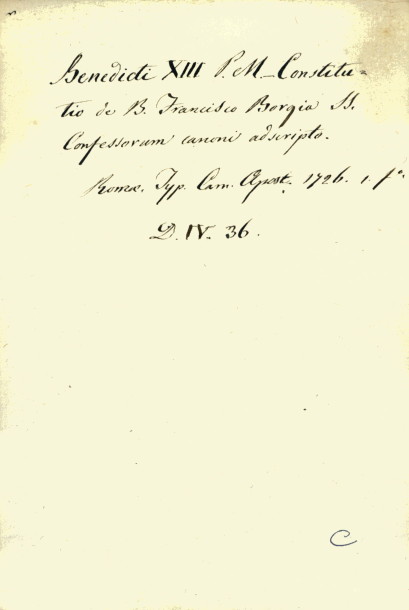 Benedicti XIII P. M. Constitu=
tio de B. Francisco Borgia SS.
Confessorum canoni adscripto.
Romæ. Typ. Cam. Apost. 1726. 1. fº.
D. IV. 36.
C